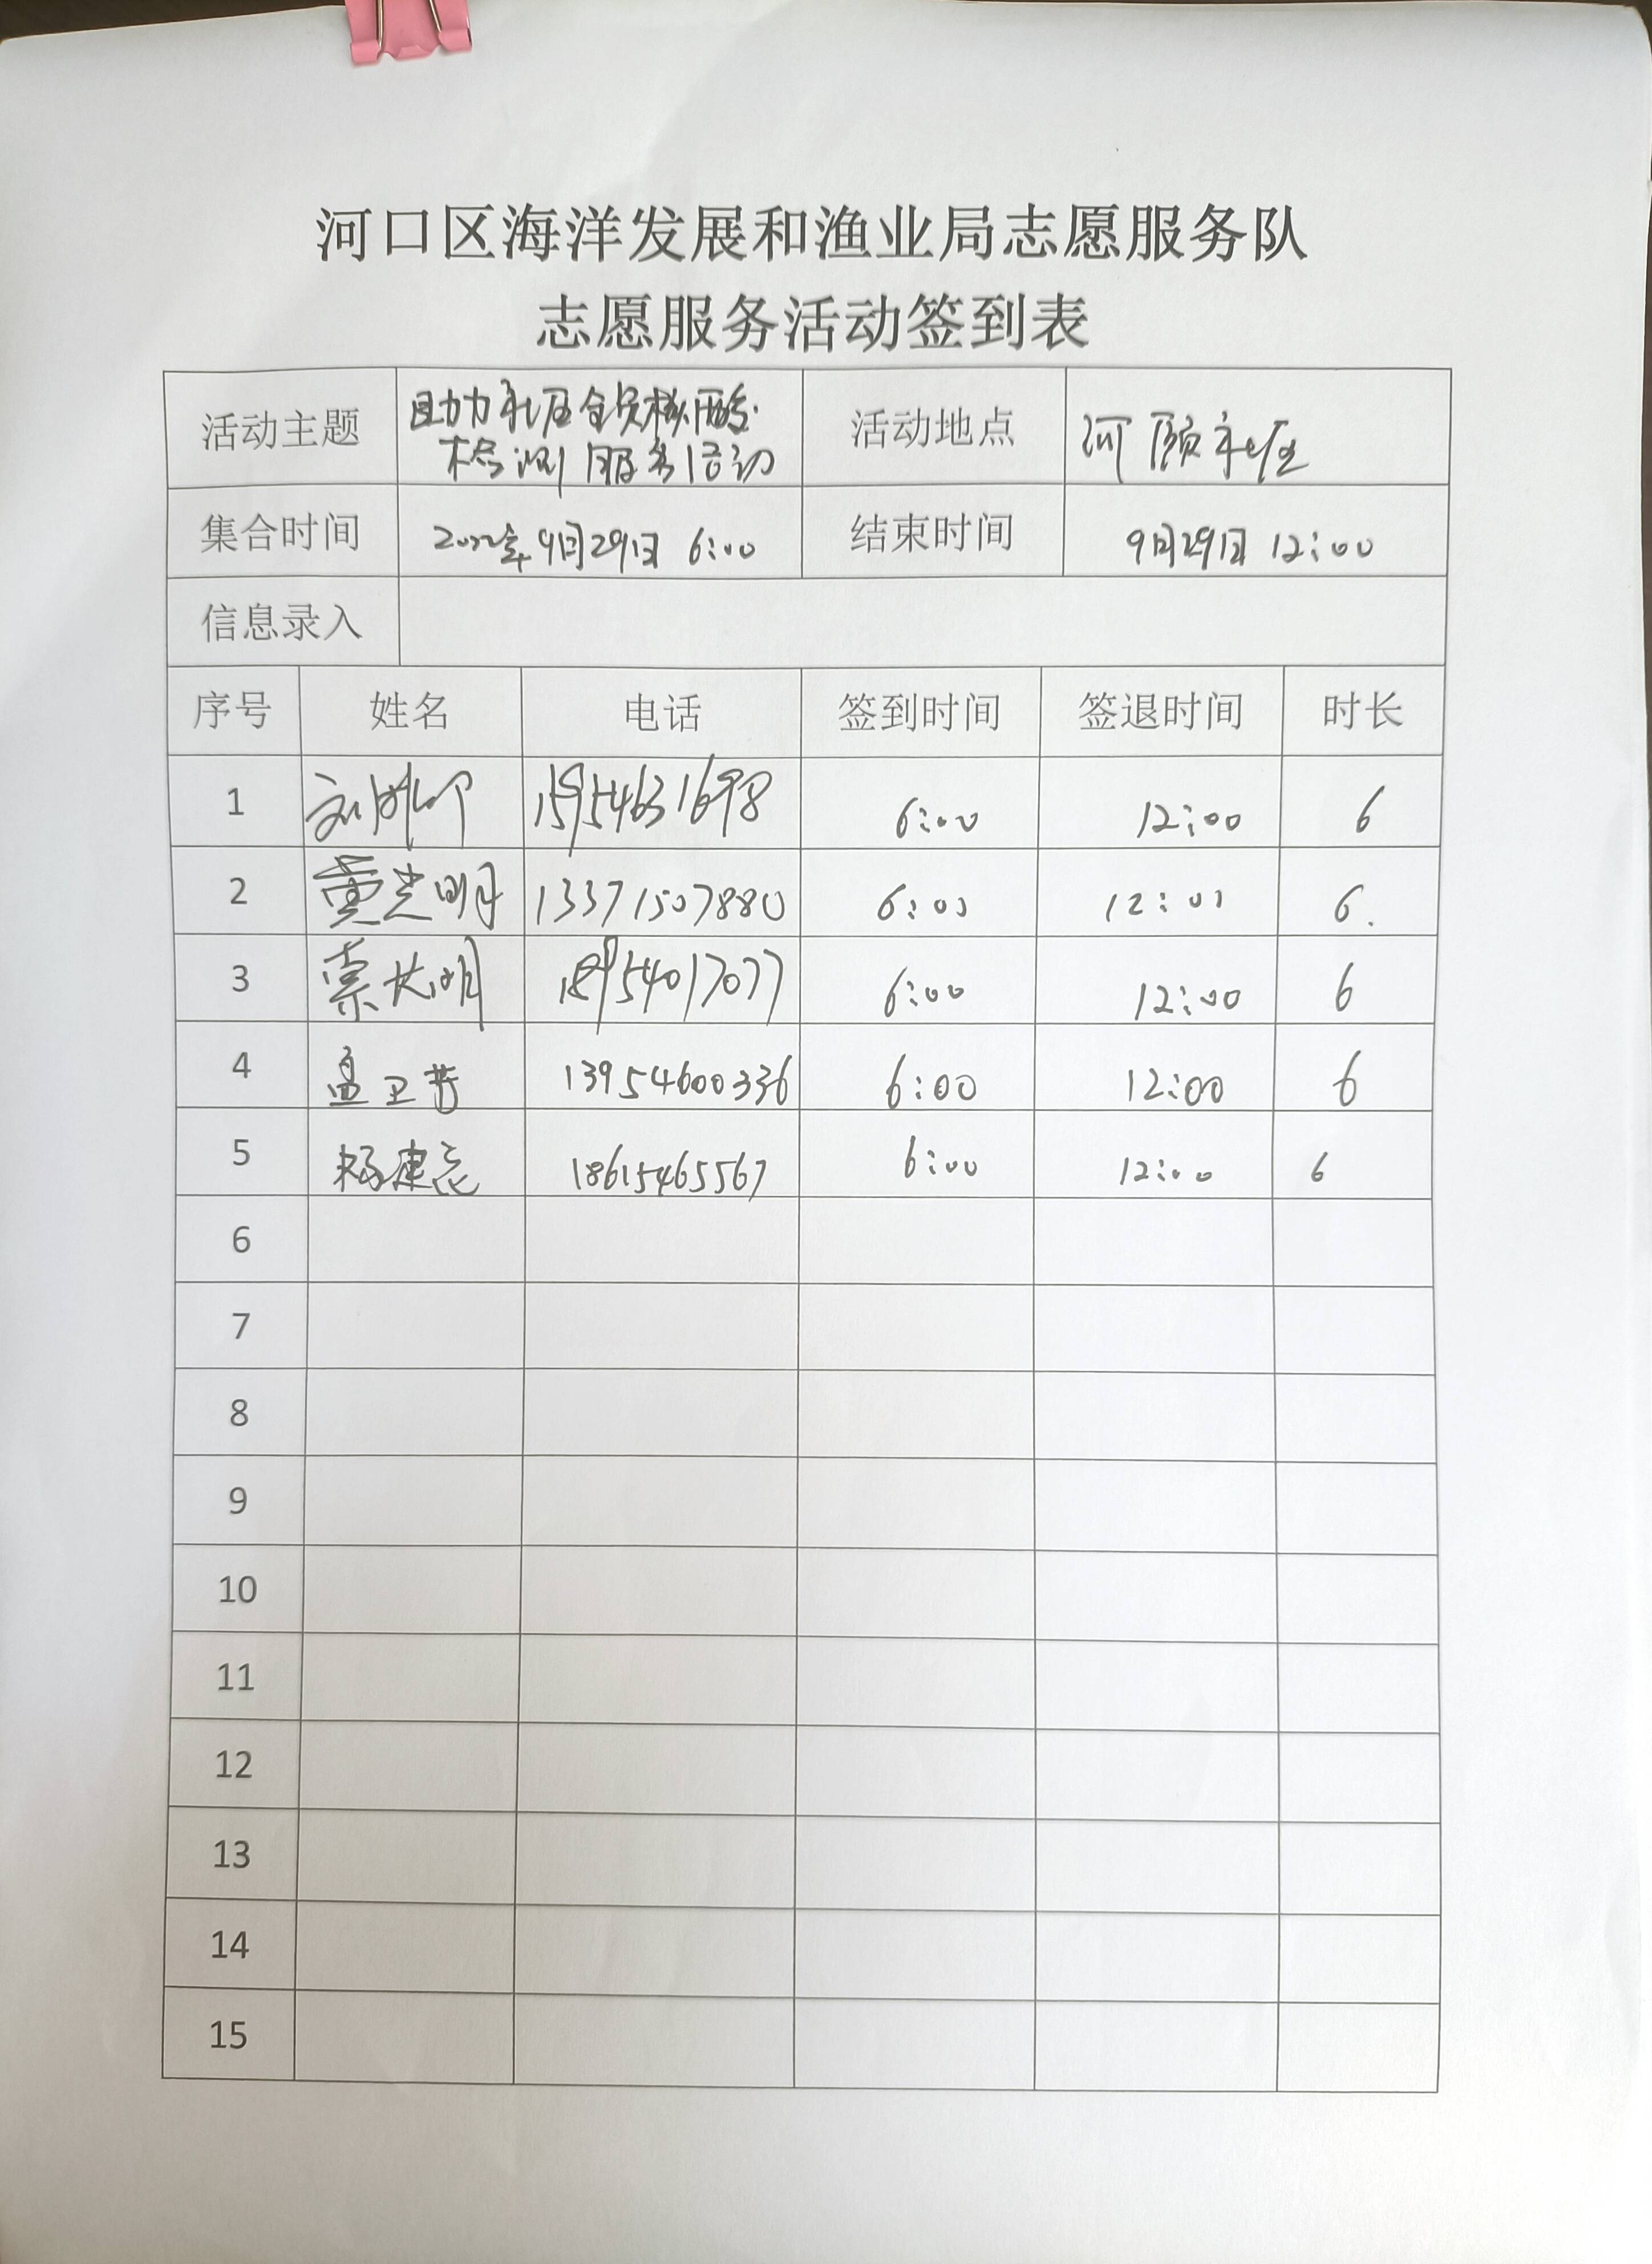 河口区海洋发展和渔业局志愿服务队
志愿服务活动签到表
活动主题 助力社区全员核酸检测服务活动 活动地点 河颐社区
集合时间 2022年9月29日 6:00 结束时间 9月29日 12:00
信息录入
序号 姓名 电话 签到时间 签退时间 时长
1 15954631698 6:00 12:00 6
2 黄光明 13371507880 6:00 12:00 6.
3 明 18954017077 6:00 12:00 6
4 孟卫芳 13954600336 6:00 12:00 6
5 杨建 18615465567 6:00 12:00 6
6
7
8
9
10
11
12
13
14
15